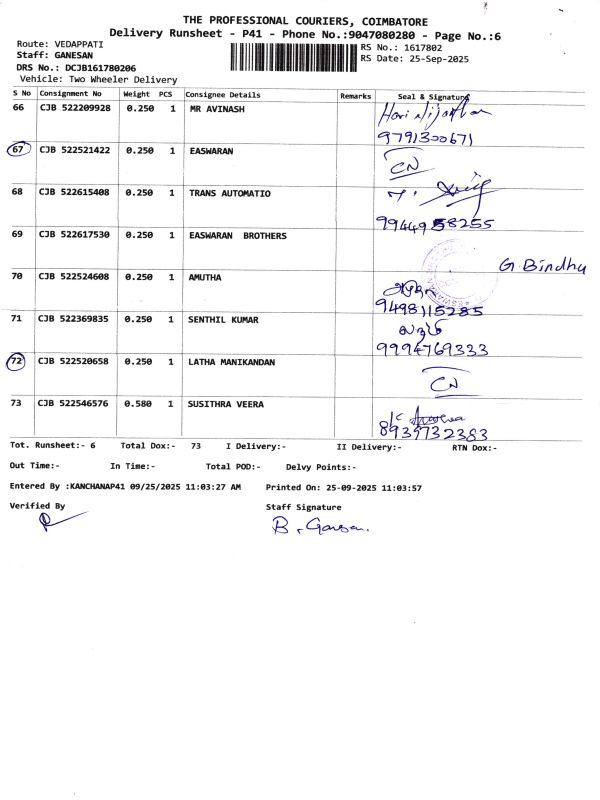 THE PROFESSIONAL COURIERS, COIMBATORE
Delivery Runsheet - P41 - Phone No.:9047080280 - Page No.:6
Route: VEDAPPATI
RS No.: 1617802
Staff: GANESAN
RS Date: 25-Sep-2025
DRS No.: DCJB161780206
Vehicle: Two Wheeler Delivery
S No Consignment No Weight PCS Consignee Details Remarks Seal & Signature
66 CJB 522209928 0.250 1 MR AVINASH
9791300671
67 CJB 522521422 0.250 1 EASWARAN CN
68 CJB 522615408 0.250 1 TRANS AUTOMATIO
9944958255
69 CJB 522617530 0.250 1 EASWARAN BROTHERS G Bindhu
70 CJB 522524608 0.250 1 AMUTHA அமுதா
9498115285
71 CJB 522369835 0.250 1 SENTHIL KUMAR
9994769333
72 CJB 522520658 0.250 1 LATHA MANIKANDAN CN
73 CJB 522546576 0.580 1 SUSITHRA VEERA
8939732383
Tot. Runsheet:- 6 Total Dox:- 73 I Delivery:- II Delivery:- RTN Dox:-
Out Time:- In Time:- Total POD:- Delvy Points:-
Entered By :KANCHANAP41 09/25/2025 11:03:27 AM Printed On: 25-09-2025 11:03:57
Verified By Staff Signature
B. Ganesan.